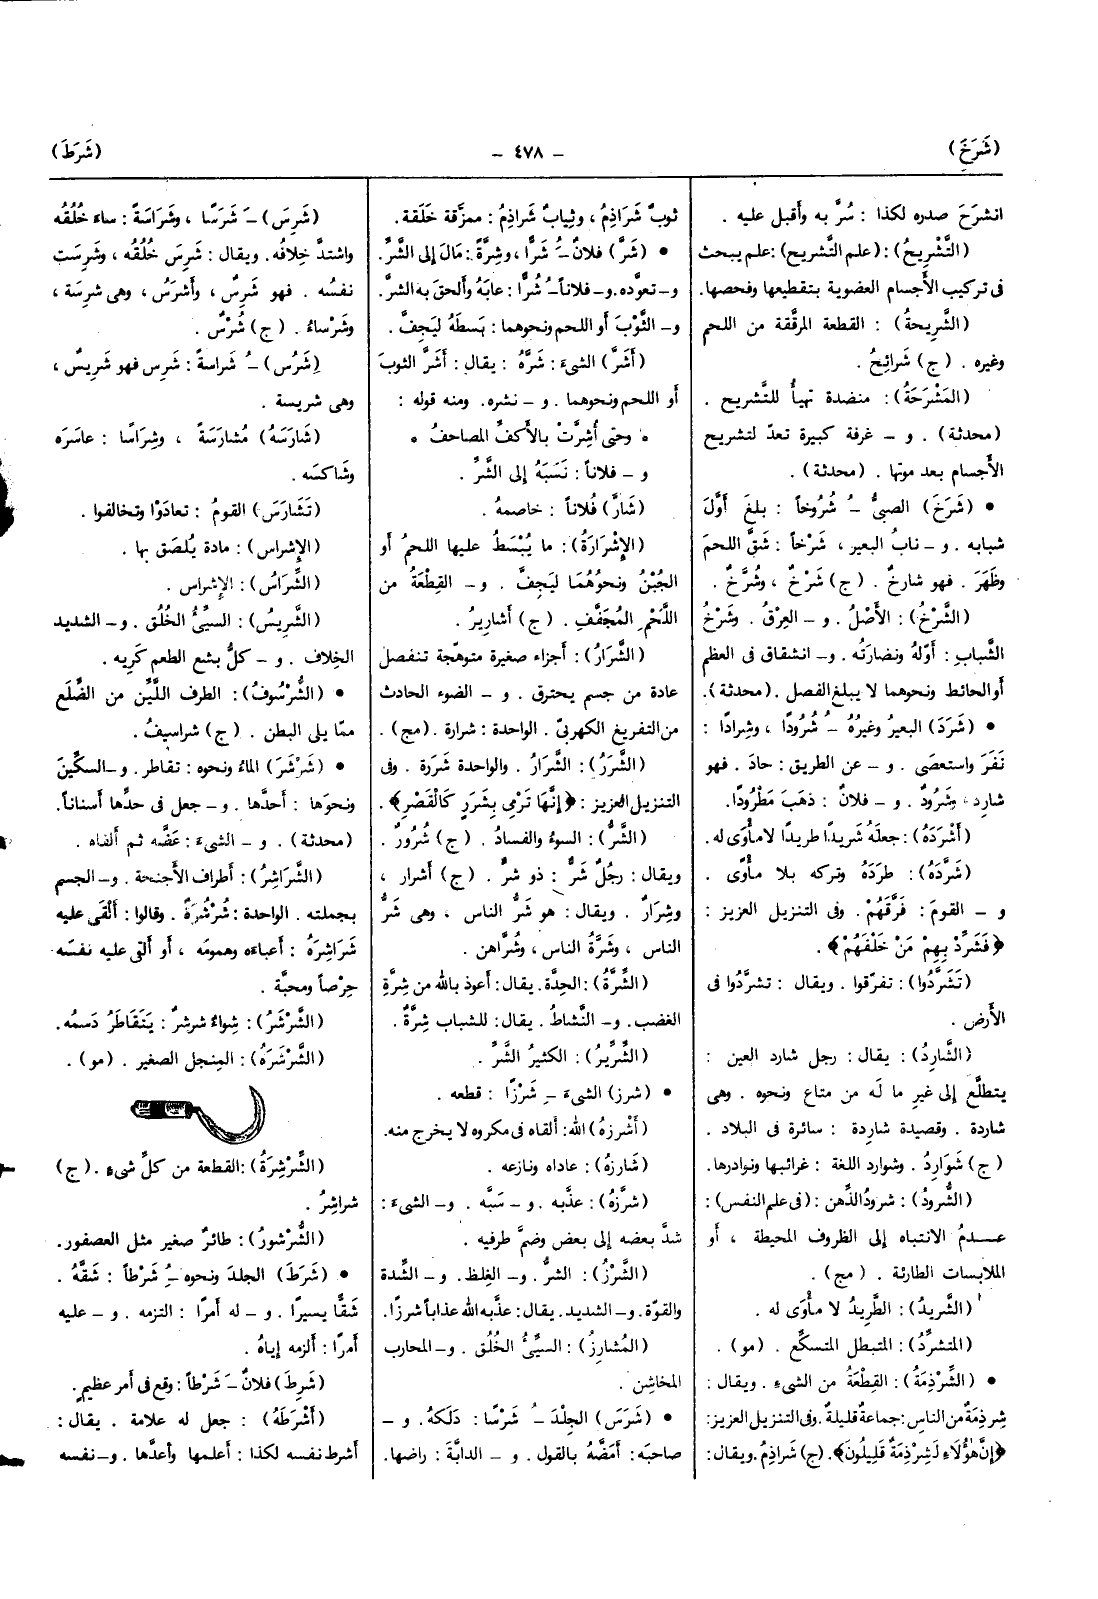 (شَرَخَ)
– ٤٧٨ –
(شَرَطَ)
انشرَحَ صدره لكذا : سُرَّ به وأَقبل عليه .
(التَّشْرِيحُ) : (علم التَّشريح) : علم يبحث
فى تركيب الأَجسام العضوية بتقطيعها وفحصها.
(الشَّرِيحةُ) : القطعة المرقَّقة من اللحم
وغيره . (ج) شَرائِحُ .
(المَشْرَحَةُ) : منضدة تهيأُ للتَّشريح .
(محدثة) . و – غرفة كبيرة تعدّ لتشريح
الأَجسام بعد موتها . (محدثة) .
• (شَرَخَ) الصبىُّ –ُ شُرُوخاً : بلغَ أَوَّلَ
شبابه . و – نابُ البعير ، شَرْخاً : شَقَّ اللحمَ
وظَهَرَ . فهو شارخٌ . (ج) شَرْخٌ ، وشُرَّخٌ .
(الشَّرْخُ) : الأَصْلُ . و – العِرْقُ . وشَرْخُ
الشَّباب : أَوّلهُ ونضارَتُه . و – انشقاق فى العظم
أَو الحائط ونحوهما لا يبلغ الفصل . (محدثة).
• (شَرَدَ) البعيرُ وغيرُهُ –ُ شُرُودًا ، وشِرادًا :
نَفَرَ واستعصَى . و – عن الطريق : حادَ . فهو
شارد ، وشَرُودٌ . و – فلانٌ : ذهَبَ مَطْرُودًا.
(أَشْرَدَهُ) : جعلَهُ شَرِيدًا طريدًا لا مأْوَى له.
(شَرَّدَهُ) : طَرَدَهُ وتركه بلا مأْوًى .
و – القومَ : فَرَّقَهُمْ . وفى التنزيل العزيز :
﴿فَشَرِّدْ بِهِمْ مَنْ خَلْفَهُمْ﴾ .
(تَشَرَّدُوا) : تفرّقوا . ويقال : تشرَّدُوا فى
الأَرض .
(الشَّارِدُ) : يقال : رجل شارد العين :
يتطلَّع إلى غيرِ ما لَه من متاع ونحوه . وهى
شاردة . وقصيدة شارِدة : سائرة فى البلاد .
(ج) شَوَارِدُ . وشوارد اللغة : غرائبها ونوادرها.
(الشُّرودُ) : شرودُ الذِّهن : (فى علم النفس) :
عـدمُ الانتباه إلى الظروف المحيطة ، أَو
الملابسات الطارئة . (مج) .
(الشَّرِيدُ) : الطَّرِيدُ لا مأْوَى له .
(المتشرِّدُ) : المتبطل المتسكِّع . (مو) .
• (الشِّرْذِمَةُ) : القِطْعَةُ من الشىءِ . ويقال :
شِرذِمةٌ من الناس : جماعةٌ قليلةٌ. وفى التنزيل العزيز:
﴿إِنَّ هٰؤُلَاءِ لَشِرْذِمَةٌ قَلِيلُونَ﴾. (ج) شَراذِمُ. ويقال :
ثوبٌ شَرَاذِمُ ، وثِيابٌ شَراذِمُ : ممزَّقة خَلَقة.
• (شَرَّ) فلانٌ –ُ شَرًّا ، وشِرَّةً : مَالَ إلى الشَّرِّ.
و – تعوَّده. و – فلاناً –ُ شُرًّا : عابَهُ وأَلحقَ به الشرَّ.
و – الثَّوْبَ أَو اللحم ونحوهما : بَسطَهُ لِيَجِفَّ .
(أَشَرَّ) الشىءَ : شَرَّهُ : يقال : أَشَرَّ الثوبَ
أَو اللحم ونحوهما . و – نشره. ومنه قوله :
• وحتى أُشِرَّتْ بالأَكفِّ المصاحفُ •
و – فلاناً : نَسَبَهُ إلى الشَّرِّ .
(شَارَّ) فُلاناً : خاصمهُ .
(الإِشْرارَةُ) : ما يُبْسَطُ عليها اللحمُ أَو
الجُبْنُ ونحوُهُمَا ليَجِفَّ . و – القِطْعَةُ من
اللَّحْمِ المُجَفَّفِ . (ج) أَشارِيرُ .
(الشَّرَارُ) : أَجزاء صغيرة متوهّجة تنفصل
عادة من جسم يحترق . و – الضوء الحادث
من التفريغ الكهربىّ . الواحدة : شرارة . (مج) .
(الشَّرَرُ) : الشَّرارُ . والواحدة شَرَرَة . وفى
التنزيل العزيز : ﴿إِنَّهَا تَرْمِى بِشَرَرٍ كَالْقَصْرِ﴾ .
(الشَّرُّ) : السوءُ والفسادُ . (ج) شُرُورٌ .
ويقال : رجُلٌ شَرٌّ : ذو شرٍّ . (ج) أَشرار ،
وشِرَارٌ . ويقال : هو شَرُّ الناس ، وهى شَرُّ
الناس ، وشَرَّةُ الناس ، وشُرَّاهن .
(الشِّرَّةُ) : الحِدَّة. يقال : أَعوذ بالله من شِرَّةِ
الغضب. و – النَّشاطُ . يقال: للشباب شِرَّةٌ .
(الشِّرِّيرُ) : الكثيرُ الشَّرِّ .
• (شرز) الشىءَ –ِ شَرْزًا : قطعه .
(أَشْرزهُ) اللهُ: أَلقاه فى مكروه لا يخرج منه.
(شارزهُ) : عاداه ونازعه .
(شَرَّزهُ) : عذَّبه . و – سَبَّه . و – الشىءَ :
شدَّ بعضه إلى بعض وضمَّ طرفيه .
(الشَّرْزُ) : الشرُّ . و – الغِلظ. و – الشِّدة
والقوّة. و – الشديد. يقال: عذَّبه الله عذاباً شرزًا.
(المُشارِزُ) : السيِّئُ الخُلُق . و – المحارب
المخاشِن .
• (شَرَسَ) الجِلْدَ –ُ شَرْسًا : دَلَكهُ . و –
صاحبَه : أَمَضَّهُ بالقول. و – الدابَّةَ : راضها.
(شَرِسَ) –َ شَرَسًا ، وشَراسَةً : ساءَ خُلُقُه
واشتدَّ خِلافُه. ويقال : شَرِسَ خُلُقُه ، وشَرِسَت
نفسُه . فهو شَرِسٌ ، وأَشرَسُ ، وهى شَرِسة ،
وشَرْساءُ . (ج) شُرْسٌ .
(شَرُس) –ُ شراسةً : شَرِس فهو شَرِيسٌ ،
وهى شريسة .
(شَارَسَهُ) مُشارَسَةً ، وشِراسًا : عاسَرَه
وشَاكسَه .
(تَشَارَسَ) القومُ : تعادَوْا وتخالفوا .
(الإِشراس) : مادة يُلصَق بها .
(الشِّرَاسُ) : الإِشراس .
(الشَّرِيسُ) : السيِّئُ الخُلُق . و – الشديد
الخِلاف . و – كلُّ بشع الطعم كَرِيه .
• (الشُّرْسُوفُ) : الطرف اللَّيِّن من الضِّلَع
ممّا يلى البطن . (ج) شراسيفُ .
• (شَرْشَرَ) الماءُ ونحوه : تقاطر . و – السكِّينَ
ونحوَها : أَحدَّها . و – جعل فى حدِّها أَسناناً.
(محدثة) . و – الشىءَ : عَضَّه ثم أَلقاه .
(الشَّرَاشِرُ) : أَطراف الأَجنحة . و – الجسم
بجملته . الواحدة : شُرْشُرَةٌ . وقالوا : أَلْقَى عليه
شَرَاشِرَهُ : أَعباءَه وهمومَه ، أَو أَلقى عليه نفسَه
حِرْصاً ومحبَّة .
(الشَّرْشَرُ) : شِواءٌ شَرشَرٌ : يَتَقَاطَرُ دَسمُه.
(الشَّرْشَرَةُ) : المِنجل الصغير . (مو) .
(الشِّرْشِرَةُ) : القطعة من كلِّ شىءٍ . (ج)
شراشِرُ .
(الشُّرْشورُ) : طائرٌ صغير مثل العصفور.
• (شَرَطَ) الجلدَ ونحوه –ُِ شَرْطاً : شَقَّهُ .
شَقًّا يسيرًا . و – له أَمرًا : التزمه . و – عليه
أَمرًا : أَلزمه إياهُ .
(شَرِطَ) فلانٌ –َ شَرْطاً : وقع فى أَمر عظيم.
(أَشْرَطَهُ) : جعل له علامة . يقال :
أَشرط نفسه لكذا : أَعلمها وأَعدَّها. و – نفسه